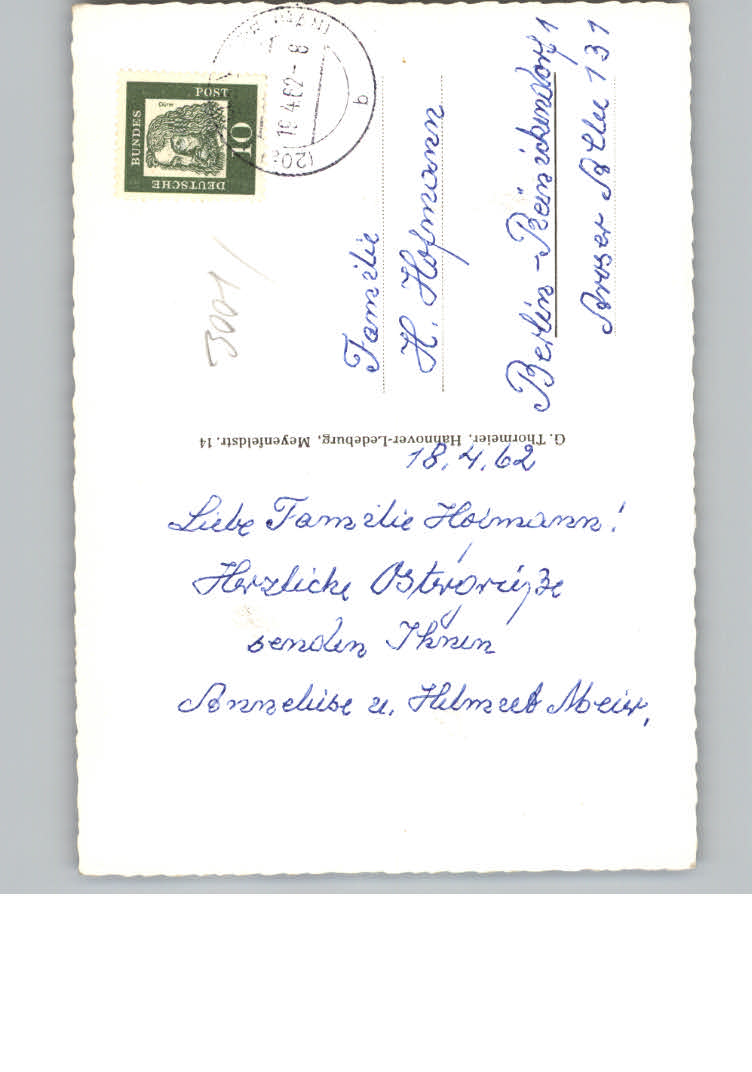 DEUTSCHE
BUNDES
POST
Dürer
10
19.4.62-8
(20a)
b
3001/
Familie
H. Hofmann
Berlin-Reinickendorf 1
Aroser Allee 131
G. Thormeier, Hannover-Ledeburg, Meyenfeldstr. 14
18.4.62
Liebe Familie Hofmann!
Herzliche Ostergrüße
senden Ihnen
Anneliese u. Helmut Meier.